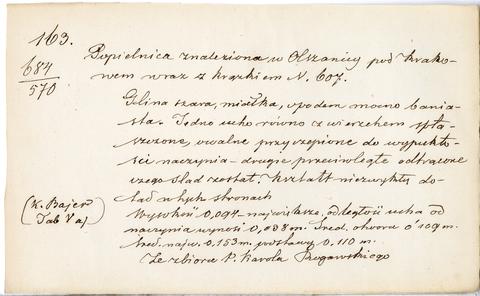 163.
684
570
Popielnica znaleziona w Olszanicy pod Krako-
wem wraz z krążkiem N. 607.
Glina szara, miałka, spodem mocno bania-
sta. Jedno ucho równo z wierzchem spła-
szczone, owalne przyczepione do wypukło-
ści naczynia – drugie przeciwległe odtrącone
czego ślad został. Kształt niezwykły do-
tąd w tych stronach
(K. Bajer
Tab Va)
Wysokość 0,094 – największa, odległość ucha od
naczynia wynosi 0,038 m. Śred. otworu 0,109 m.
Śred. najw. 0.153 m. podstawy 0.110 m.
Ze zbioru P. Karola Rogawskiego